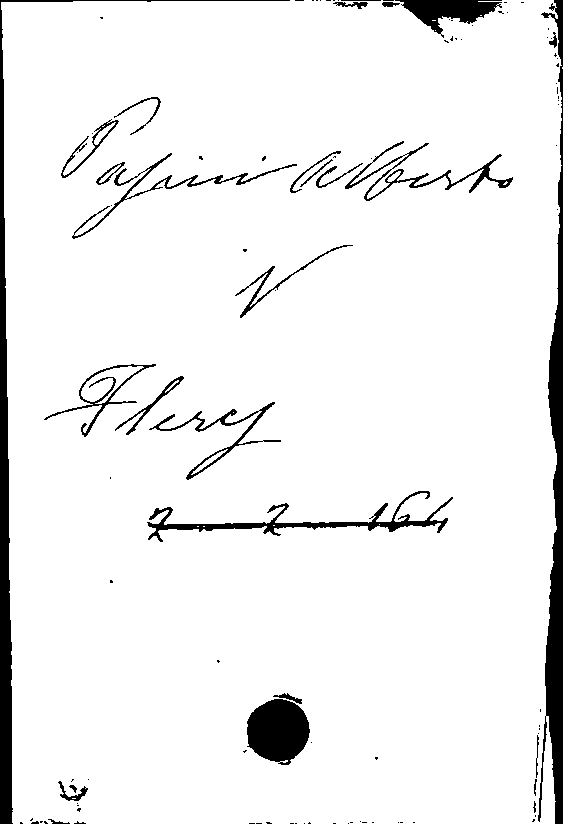 Pasini Alberto
V
Flery
2 2 164